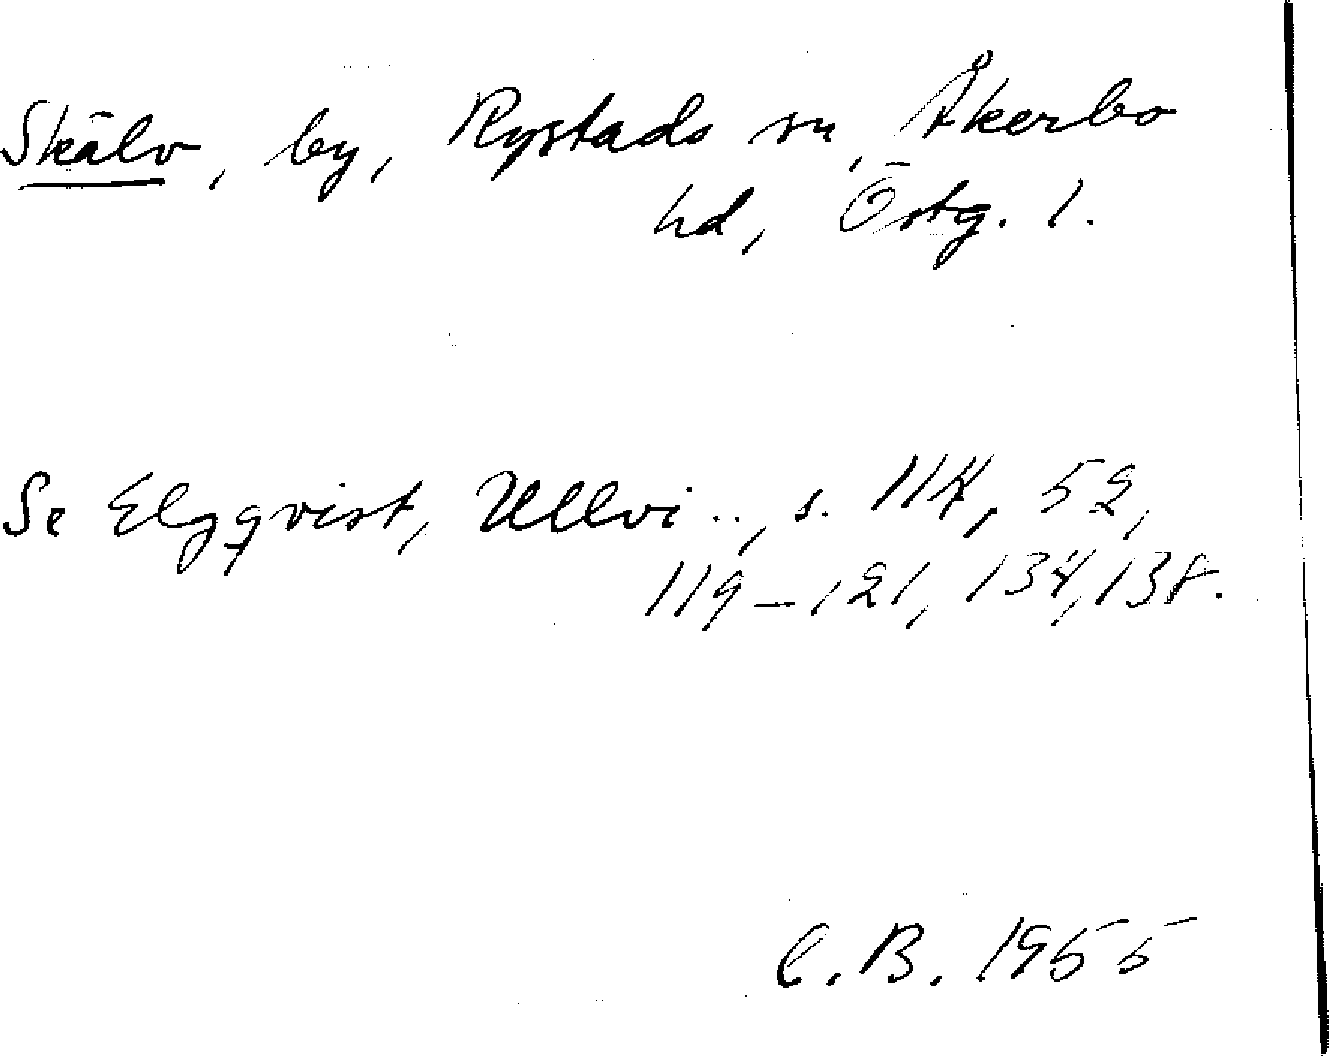 Skälv, by, Rystads sn, Åkerbo
hd, Östg. l.
Se Elgqvist, Ullvi .., s. 114, 52,
119-121, 134, 138.
C.B. 1955